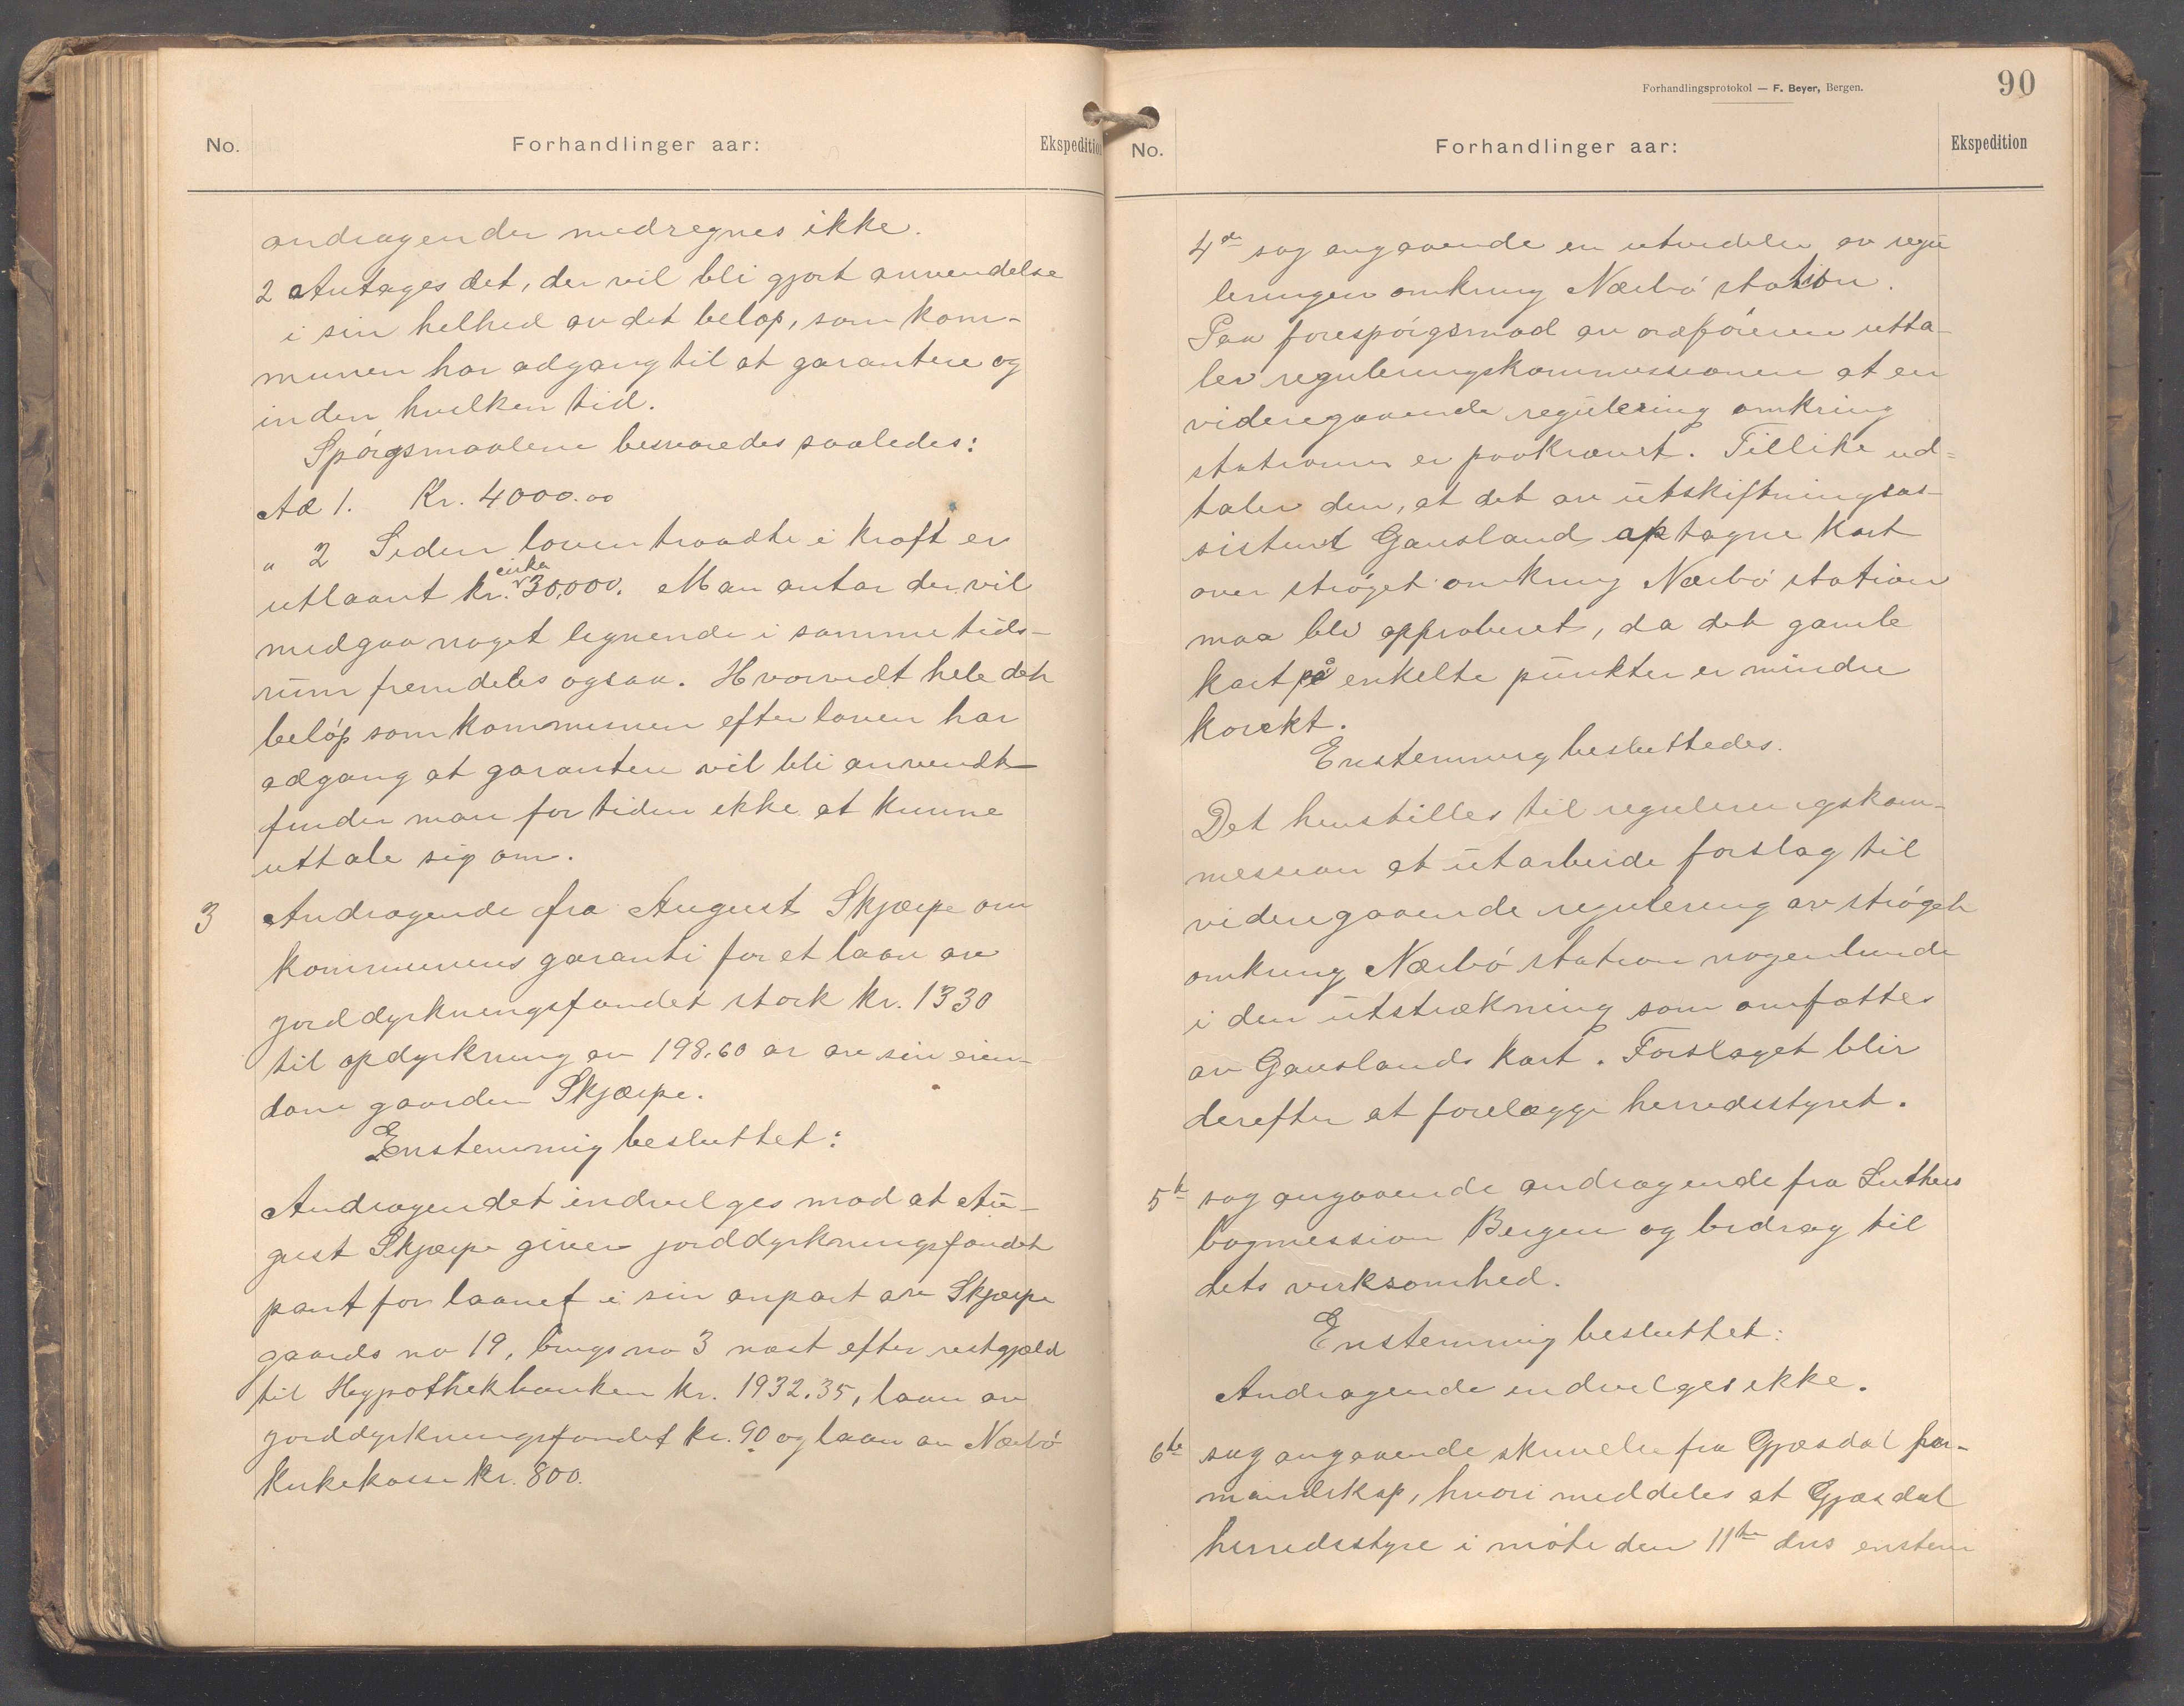 No.
Forhandlinger aar:
Ekspedition
andragender medregnes ikke.
2 Antages det, der vil bli gjort anvendelse
i sin helhed av det beløp, som kom-
munen har adgang til at garantere og
inden hvilken tid.
Spörgsmaalene besvaredes saaledes:
Ad 1. Kr. 4000.00
" 2 Siden loven traadte i kraft er
utlaant kr. cirka 30,000. Man antar der vil
medgaa noget lignende i samme tids-
rum fremdeles ogsaa. Hvorvidt hele det
belöp som kommunen efter loven har
adgang at garantere vil bli anvendt
finder man for tiden ikke at kunne
uttale sig om.
3 Andragende fra August Skjærpe om
kommunens garanti for et laan av
jorddyrkningsfondet stort kr. 1330
til opdyrkning av 198.60 ar av sin eien-
dom gaarden Skjærpe.
Enstemmig besluttet:
Andragendet indvilges mod at Au-
gust Skjærpe giver jorddyrkningsfondet
pant for laanet i sin anpart av Skjærpe
gaards no 19, brugs no 3 næst efter restgjæld
til Hypothekbanken kr. 1932.35, laan av
jorddyrkningsfondet kr. 90 og laan av Nærbö
Kirkekasse kr. 800.
Forhandlingsprotokol — F. Beyer, Bergen.
90
No.
Forhandlinger aar:
Ekspedition
4de sag angaaende en utvidelse av regu
leringen omkring Nærbö station.
Paa forespörgsmaal av ordföreren utta-
ler reguleringskommissionen at en
videregaaende regulering omkring
stationen er paakrævet. Tillike ud=
taler den, at det av utskiftningsas-
sistent Gausland optagne kart
over ströget omkring Nærbö station
maa bli approberet, da det gamle
kart på enkelte punkter er mindre
korekt.
Enstemmig besluttedes.
Det henstilles til reguleringskom-
mession at utarbeide forslag til
videregaaende regulering av ströget
omkring Nærbö station nogenlunde
i den utstrækning som omfattes
av Gauslands kart. Forslaget blir
derefter at forelægge herredsstyret.
5te sag angaaende andragende fra Luthers
bogmession Bergen og bidrag til
dets virksomhed.
Enstemmig besluttet:
Andragende indvilges ikke.
6te sag angaaende skrivelse fra Gjæsdal for-
mandskap, hvori meddeles at Gjæsdal
herredsstyre i möte den 11te dns enstem